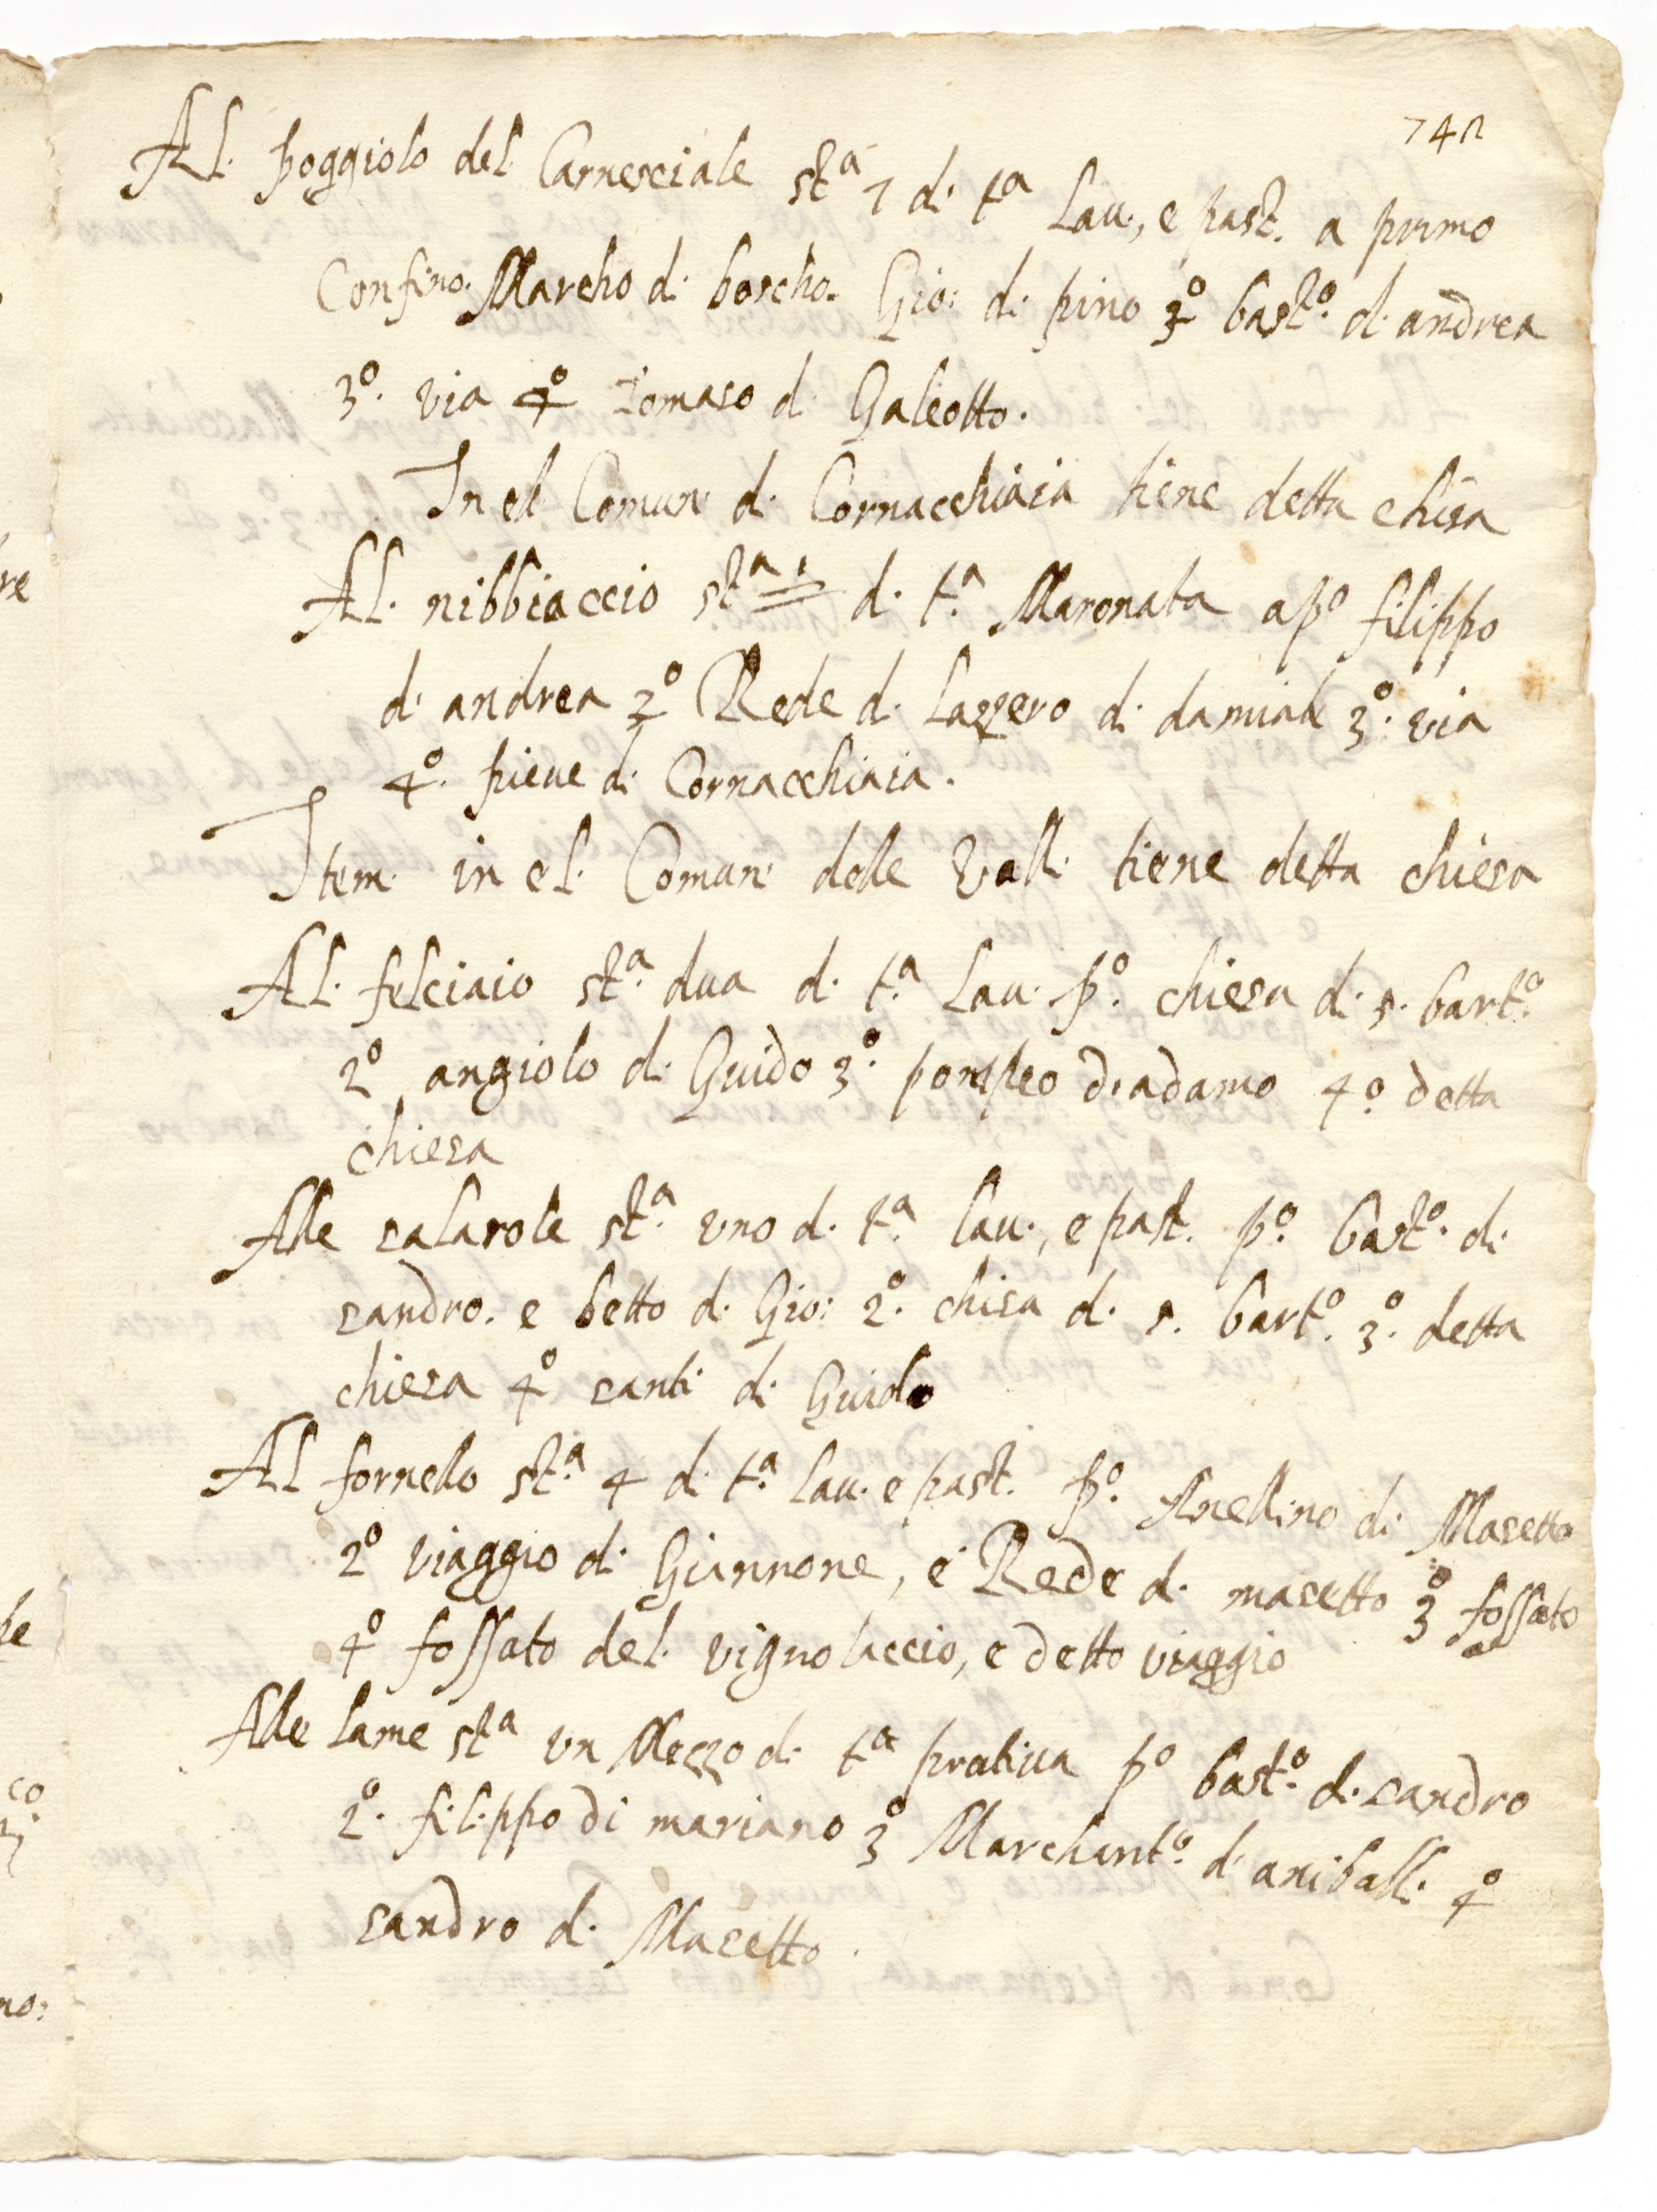 742
Al. poggiolo del Carnesciale st.ª 7 di t.ª Lau., e past. a primo
Confino. Marcho di borcho. Gio: di pino 2º bast.º di andrea
3º. via 4º Tomaso di Galeotto.
In el Comun di Cornacchiaia tiene detta chisa
Al. nibbiaccio st.ª 1 di t.ª Maronata a pº filippo
di andrea 2º Rede di Lazzero di damian 3º. via
4º. pieue di Cornacchiaia.
Item in el. Comun delle Valli tiene detta chiesa
Al. felciaio st.ª dua di t.ª Lau. pº. chiesa di s. bart.º
2º angiolo di Guido 3º. pompeo di adamo 4º detta
chiesa
Alle salarole st.ª uno di t.ª lau., e past. pº. bast.º di
sandro. e betto di Gio: 2º. chisa di s. bart.º 3º. detta
chiesa 4º santi di Guido
Al fornello st.ª 4 di t.ª lau. e past. pº. Ancellino di Masetto
2º viaggio di Giannone, e Rede di masetto 3º fossato
4º fossato del. vignolaccio, e detto viaggio
Alle lame st.ª un Mezzo di t.ª pratiua pº bast.º di sandro
2º. filippo di mariano 3º Marchant.º di aniballi 4º
sandro di Masetto.